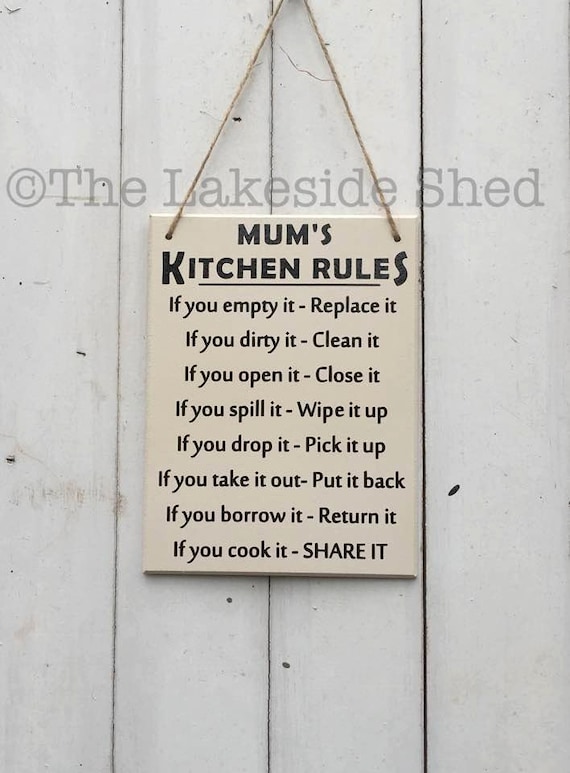 ©The Lakeside Shed
MUM'S
KITCHEN RULES
If you empty it - Replace it
If you dirty it - Clean it
If you open it - Close it
If you spill it - Wipe it up
If you drop it - Pick it up
If you take it out- Put it back
If you borrow it - Return it
If you cook it - SHARE IT